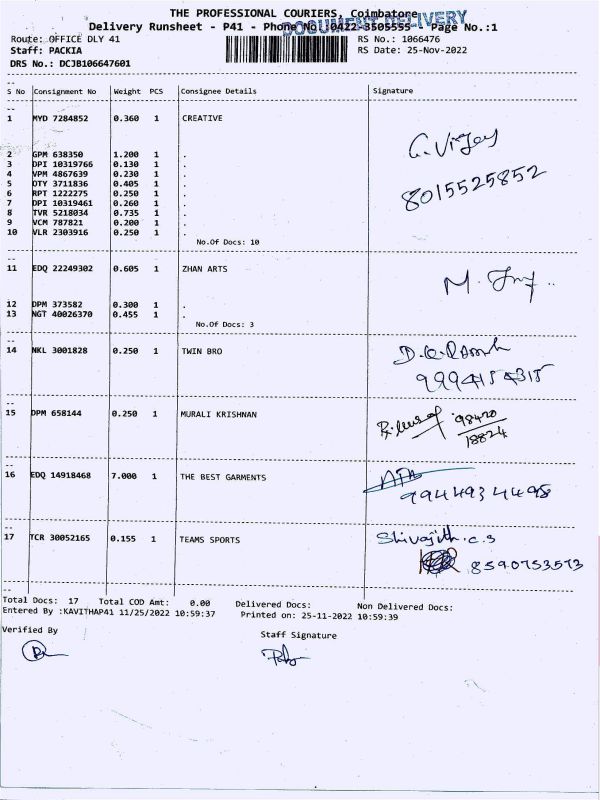 THE PROFESSIONAL COURIERS, Coimbatore
DOCUMENT DELIVERY
Delivery Runsheet - P41 - Phone No.:0422-3505555- Page No.:1
Route: OFFICE DLY 41 RS No.: 1066476
Staff: PACKIA RS Date: 25-Nov-2022
DRS No.: DCJB106647601
S No Consignment No Weight PCS Consignee Details Signature
1 MYD 7284852 0.360 1 CREATIVE
G. Vijay
2 GPM 638350 1.200 1 .
3 DPI 10319766 0.130 1 .
4 VPM 4867639 0.230 1 .
8015525852
5 OTY 3711836 0.405 1 .
6 RPT 1222275 0.250 1 .
7 DPI 10319461 0.260 1 .
8 TVR 5218034 0.735 1 .
9 VCM 787821 0.200 1 .
10 VLR 2303916 0.250 1 .
No.Of Docs: 10
11 EDQ 22249302 0.605 1 ZHAN ARTS
M.
12 DPM 373582 0.300 1 .
13 NGT 40026370 0.455 1 .
No.Of Docs: 3
14 NKL 3001828 0.250 1 TWIN BRO
9994154315
15 DPM 658144 0.250 1 MURALI KRISHNAN
98420
18824
16 EDQ 14918468 7.000 1 THE BEST GARMENTS
9944934498
17 TCR 30052165 0.155 1 TEAMS SPORTS Shivajith.c.s
8590753573
Total Docs: 17 Total COD Amt: 0.00 Delivered Docs: Non Delivered Docs:
Entered By :KAVITHAP41 11/25/2022 10:59:37 Printed on: 25-11-2022 10:59:39
Verified By Staff Signature